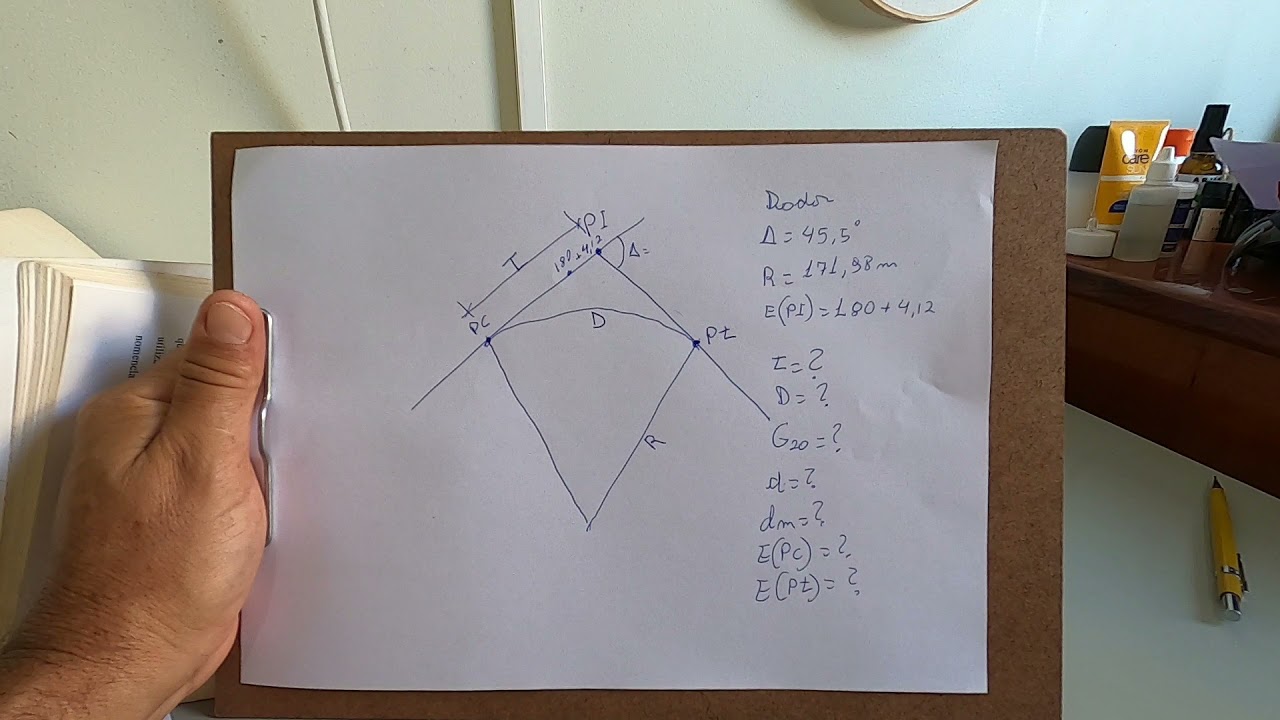 PI
180+4,12
Δ=
T
PC
D
Pt
R
Dados
Δ = 45,5°
R = 171,98m
E(PI) = 180 + 4,12
T = ?
D = ?
G20 = ?
d = ?
dm = ?
E(PC) = ?
E(Pt) = ?
care